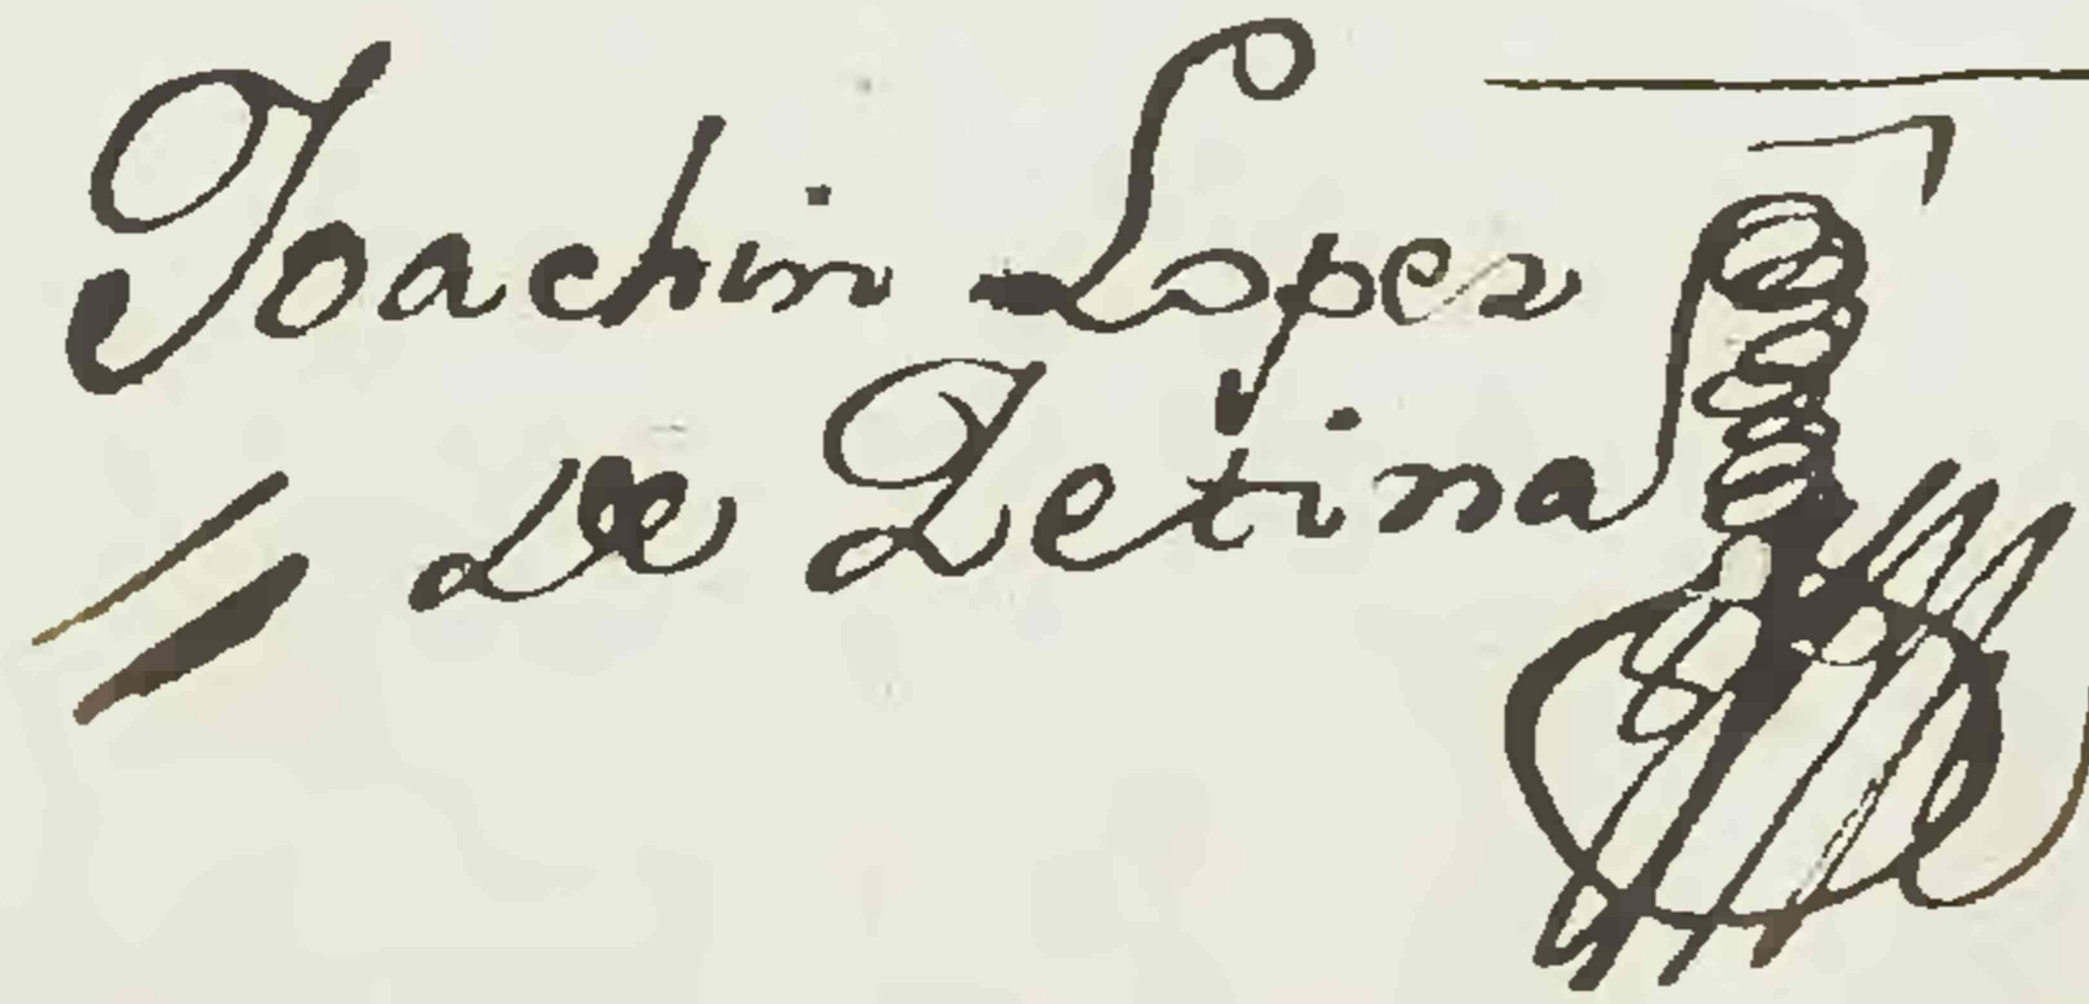 Joachin Lopez
De Zetina